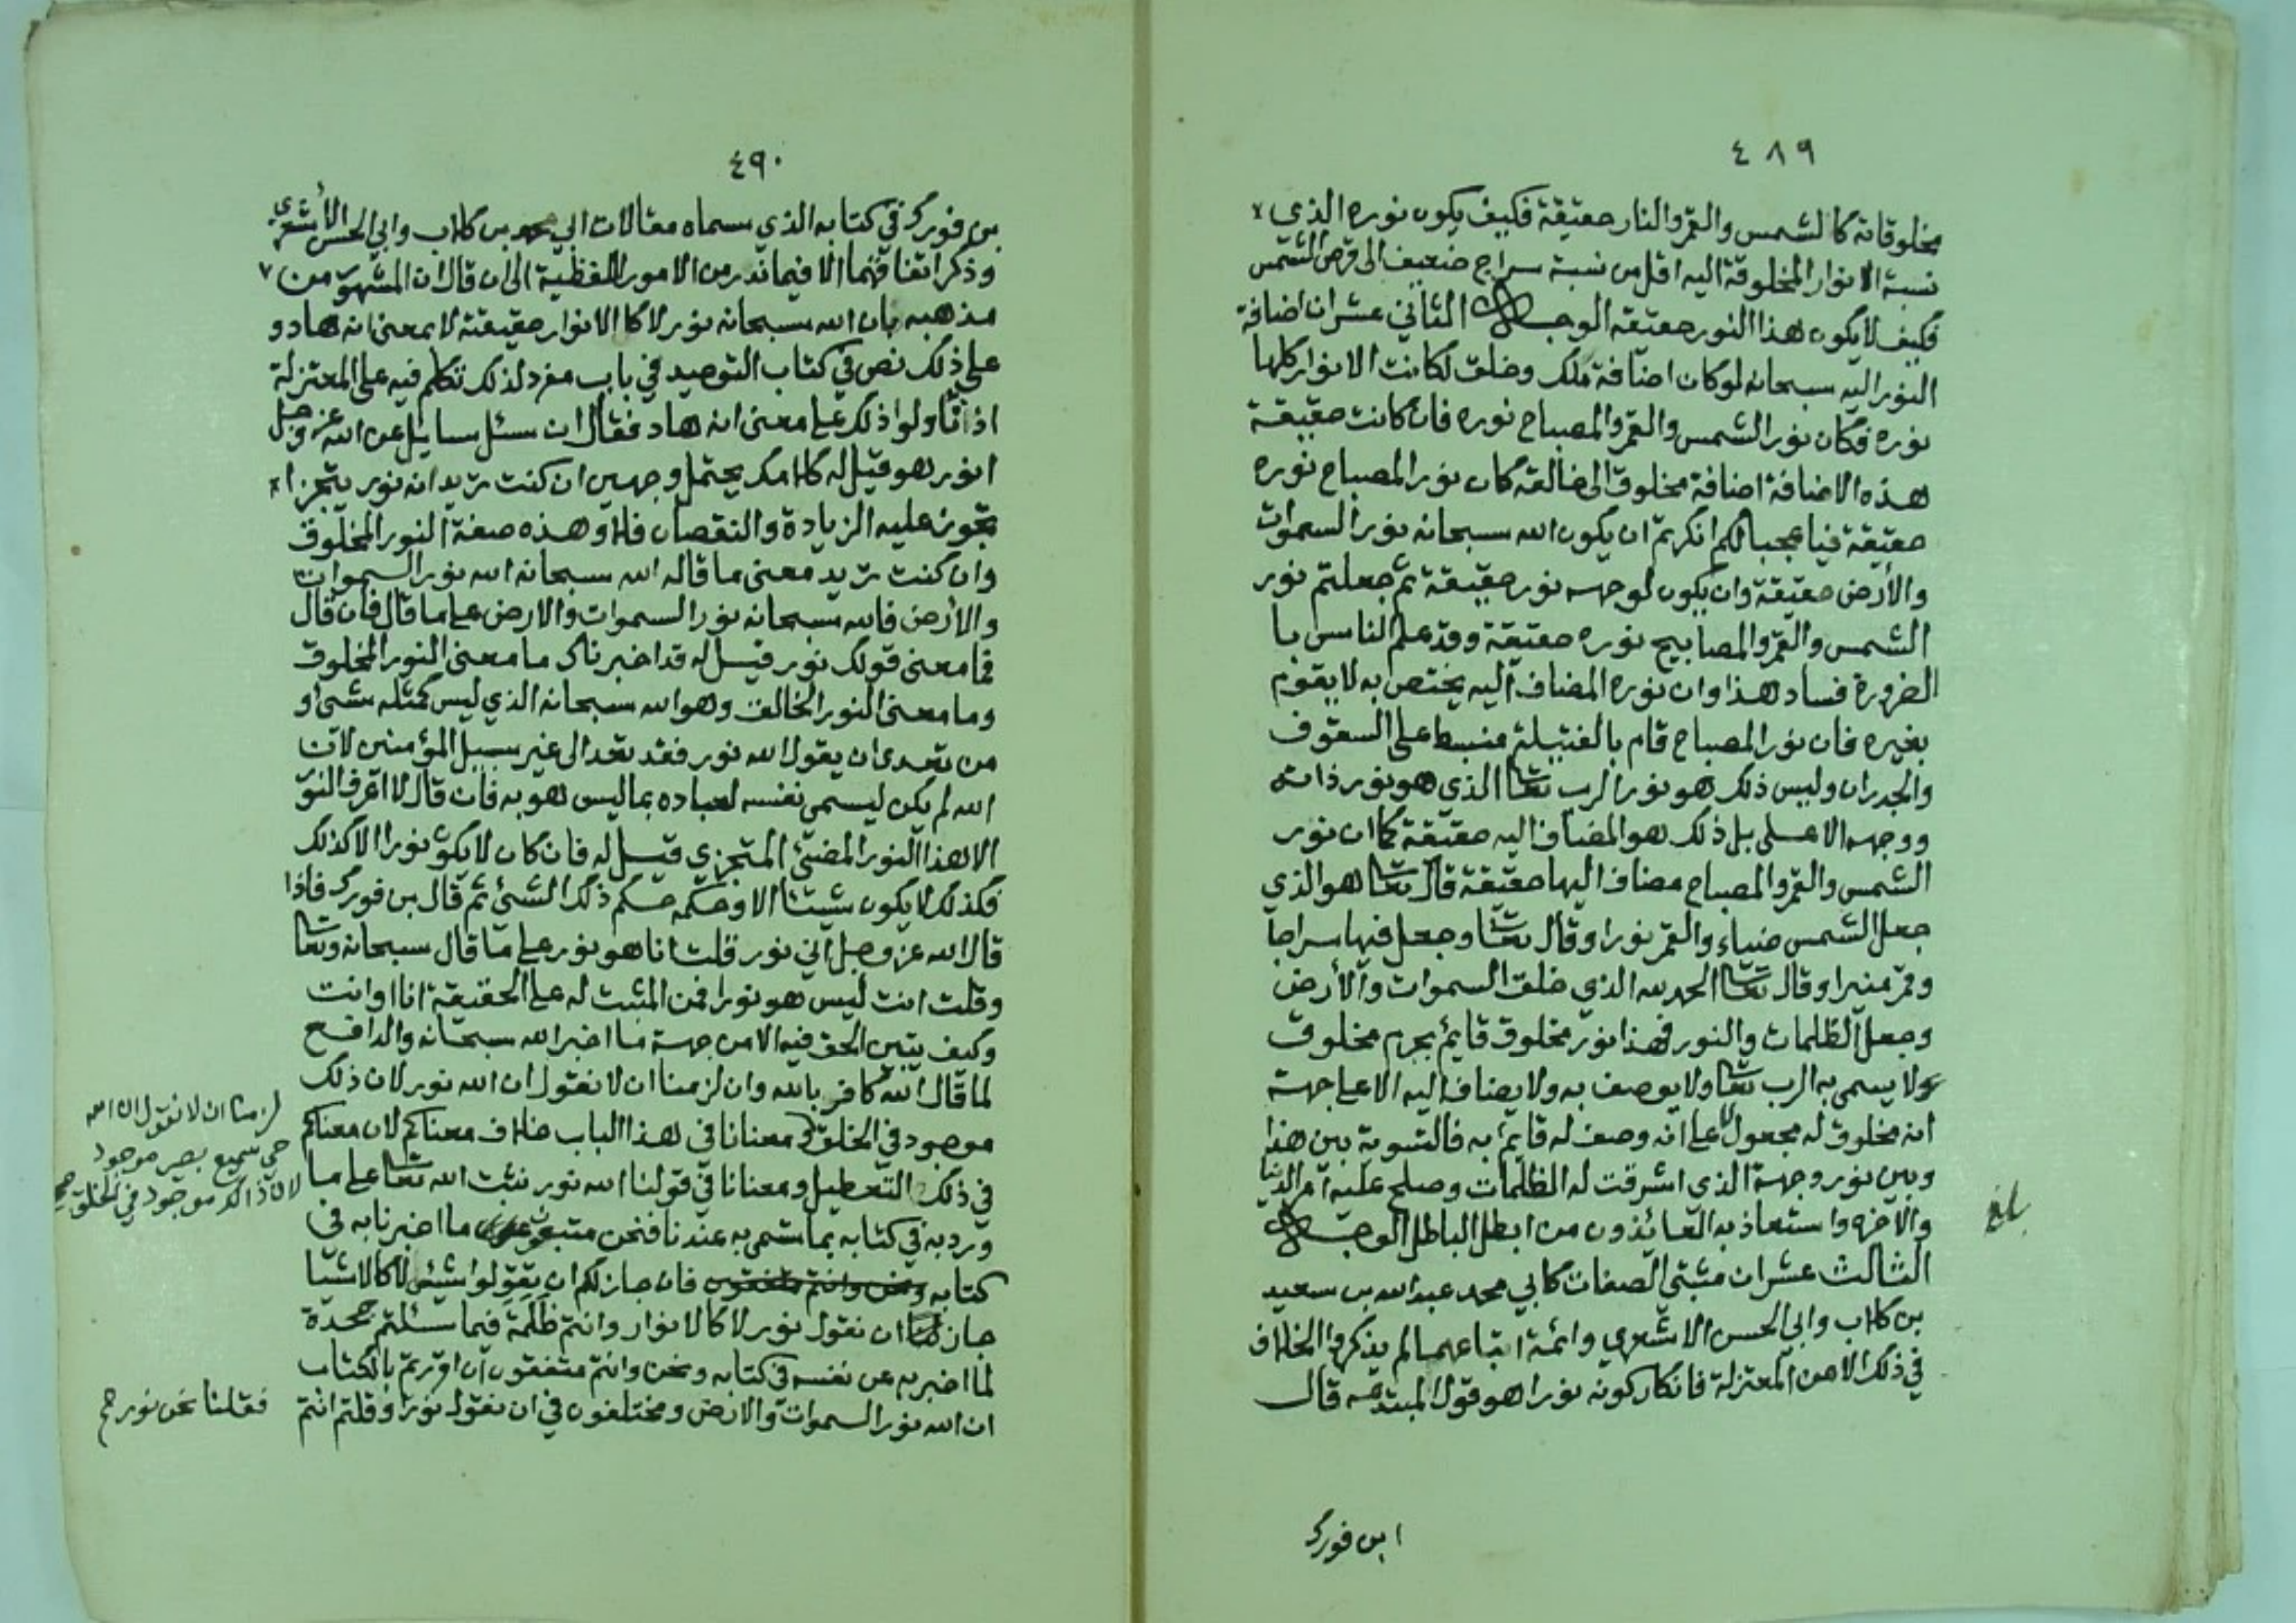 ٤٨٩
مخلوقاته كالشمس والقمر والنار حقيقة فكيف يكون نوره الذي
نسبة الانوار المخلوقة اليه اقل من نسبة سراج ضعيف الى قرص الشمس
فكيف لا يكون هذا النور حقيقه الوجه الثاني عشر ان اضافة
النور اليه سبحانه لو كان اضافة ملك وخلق لكانت الانوار كلها
نوره فكان نور الشمس والقمر والمصباح نوره فان كانت حقيقة
هذه الاضافة اضافة مخلوق الى خالقه كان نور المصباح نوره
حقيقة فيا عجبا لكم انكرتم ان يكون الله سبحانه نور السموات
والأرض حقيقة وان يكون لوجهه نور حقيقة ثم جعلتم نور
الشمس والقمر والمصابيح نوره حقيقة وقد علم الناس با
لضرورة فساد هذا وان نوره المضاف اليه يختص به لا يقوم
بغيره فان نور المصباح قام بالفتيلة منبسط على السقوف
والجدران وليس ذلك هو نور الرب تعا الذي هو نور ذاته
ووجهه الاعلى بل ذلك هو المضاف اليه حقيقة كما ان نور
الشمس والقمر والمصباح مضاف اليها حقيقة قال تعا هو الذي
جعل الشمس ضياء والقمر نورا وقال تعا وجعل فيها سراجا
وقمر منيرا وقال تعا الحمد لله الذي خلق السموات والأرض
وجعل الظلمات والنور فهذا نور مخلوق قايم بجرم مخلوق
ولا يسمى به الرب تعا ولا يوصف به ولا يضاف اليه الا على جهة
انه مخلوق له مجعول لا على انه وصف له قايم به فالتسوية بين هذا
وبين نور وجهه الذي اشرقت له الظلمات وصلح عليه امر الدنيا
والاخره واستعاذ به العائذون من ابطل الباطل الوجه
بلغ
الثالث عشر ان مثبتي الصفات كابي محمد عبد الله بن سعيد
بن كلاب وابي الحسن الاشعري وائمة اتباعهما لم يذكروا الخلاف
في ذلك الا من المعتزلة فانكار كونه نورا هو قول المبتدعه قال
ابن فورك
٤٩٠
بن فورك في كتابه الذي سماه مقالات ابي محمد بن كلاب وابي الحسن الأشعري
وذكر اتفاقهما الا فيما ندر من الامور اللفظية الى ان قال ان المشهور من
مذهبه بان الله سبحانه نور لا كالانوار حقيقة لا بمعنى انه هاد و
على ذلك نص في كتاب التوحيد في باب مفرد لذلك تكلم فيه على المعتزلة
اذ تأولوا ذلك على معنى انه هاد فقال ان سئل سايل عن الله عز وجل
انور هو قيل له كلامك يحتمل وجهين ان كنت تريد انه نور يتجزا
تجوز عليه الزيادة والنقصان فلا وهذه صفة النور المخلوق
وان كنت تريد معنى ما قاله الله سبحانه الله نور السموات
والأرض فالله سبحانه نور السموات والارض على ما قال فان قال
فما معنى قولك نور قيل له قد اخبرناك ما معنى النور المخلوق
وما معنى النور الخالق وهو الله سبحانه الذي ليس كمثله شئ و
من تعدى ان يقول الله نور فقد تعدا الى غير سبيل المؤمنين لان
الله لم يكن ليسمي نفسه لعباده بما ليس هو به فان قال لا اعرف النور
الا هذا النور المضئ المتجزي قيل له فان كان لا يكون نورا الا كذلك
فكذلك لا يكون شيئا الا وحكمه حكم ذلك الشئ ثم قال بن فورك فاذا
قال الله عز وجل اني نور قلت انا هو نور على ما قال سبحانه وتعا
وقلت انت ليس هو نورا فمن المثبت له على الحقيقة انا او انت
وكيف يتبين الحق فيه الا من جهة ما اخبر الله سبحانه والدافع
لما قال الله كافر بالله وان لزمنا ان لا نقول ان الله نور لان ذلك
لزمنا ان لا نقول ان الله
حي سميع بصير موجود
لان ذالك موجود في الخلق صح
موجود في الخلق ومعنانا في هذا الباب خلاف معناكم لان معناكم
في ذلك التعطيل ومعنانا في قولنا الله نور نثبت الله تعا على ما
ورد به في كتابه بما تسمى به عندنا فنحن متبعون ما اخبرنا به في
كتابه ونحن وانتم متفقون فان جاز لكم ان تقولوا شئ لا كالاشيا
جاز لنا ان نقول نور لا كالانوار وانتم ظلمة فيما سئلتم جحدة
لما اخبر به عن نفسه في كتابه ونحن وانتم متفقون ان اقررتم بالكتاب
ان الله نور السموات والارض ومختلفون في ان نقول نور وقلتم انتم
فقلنا نحن نور صح